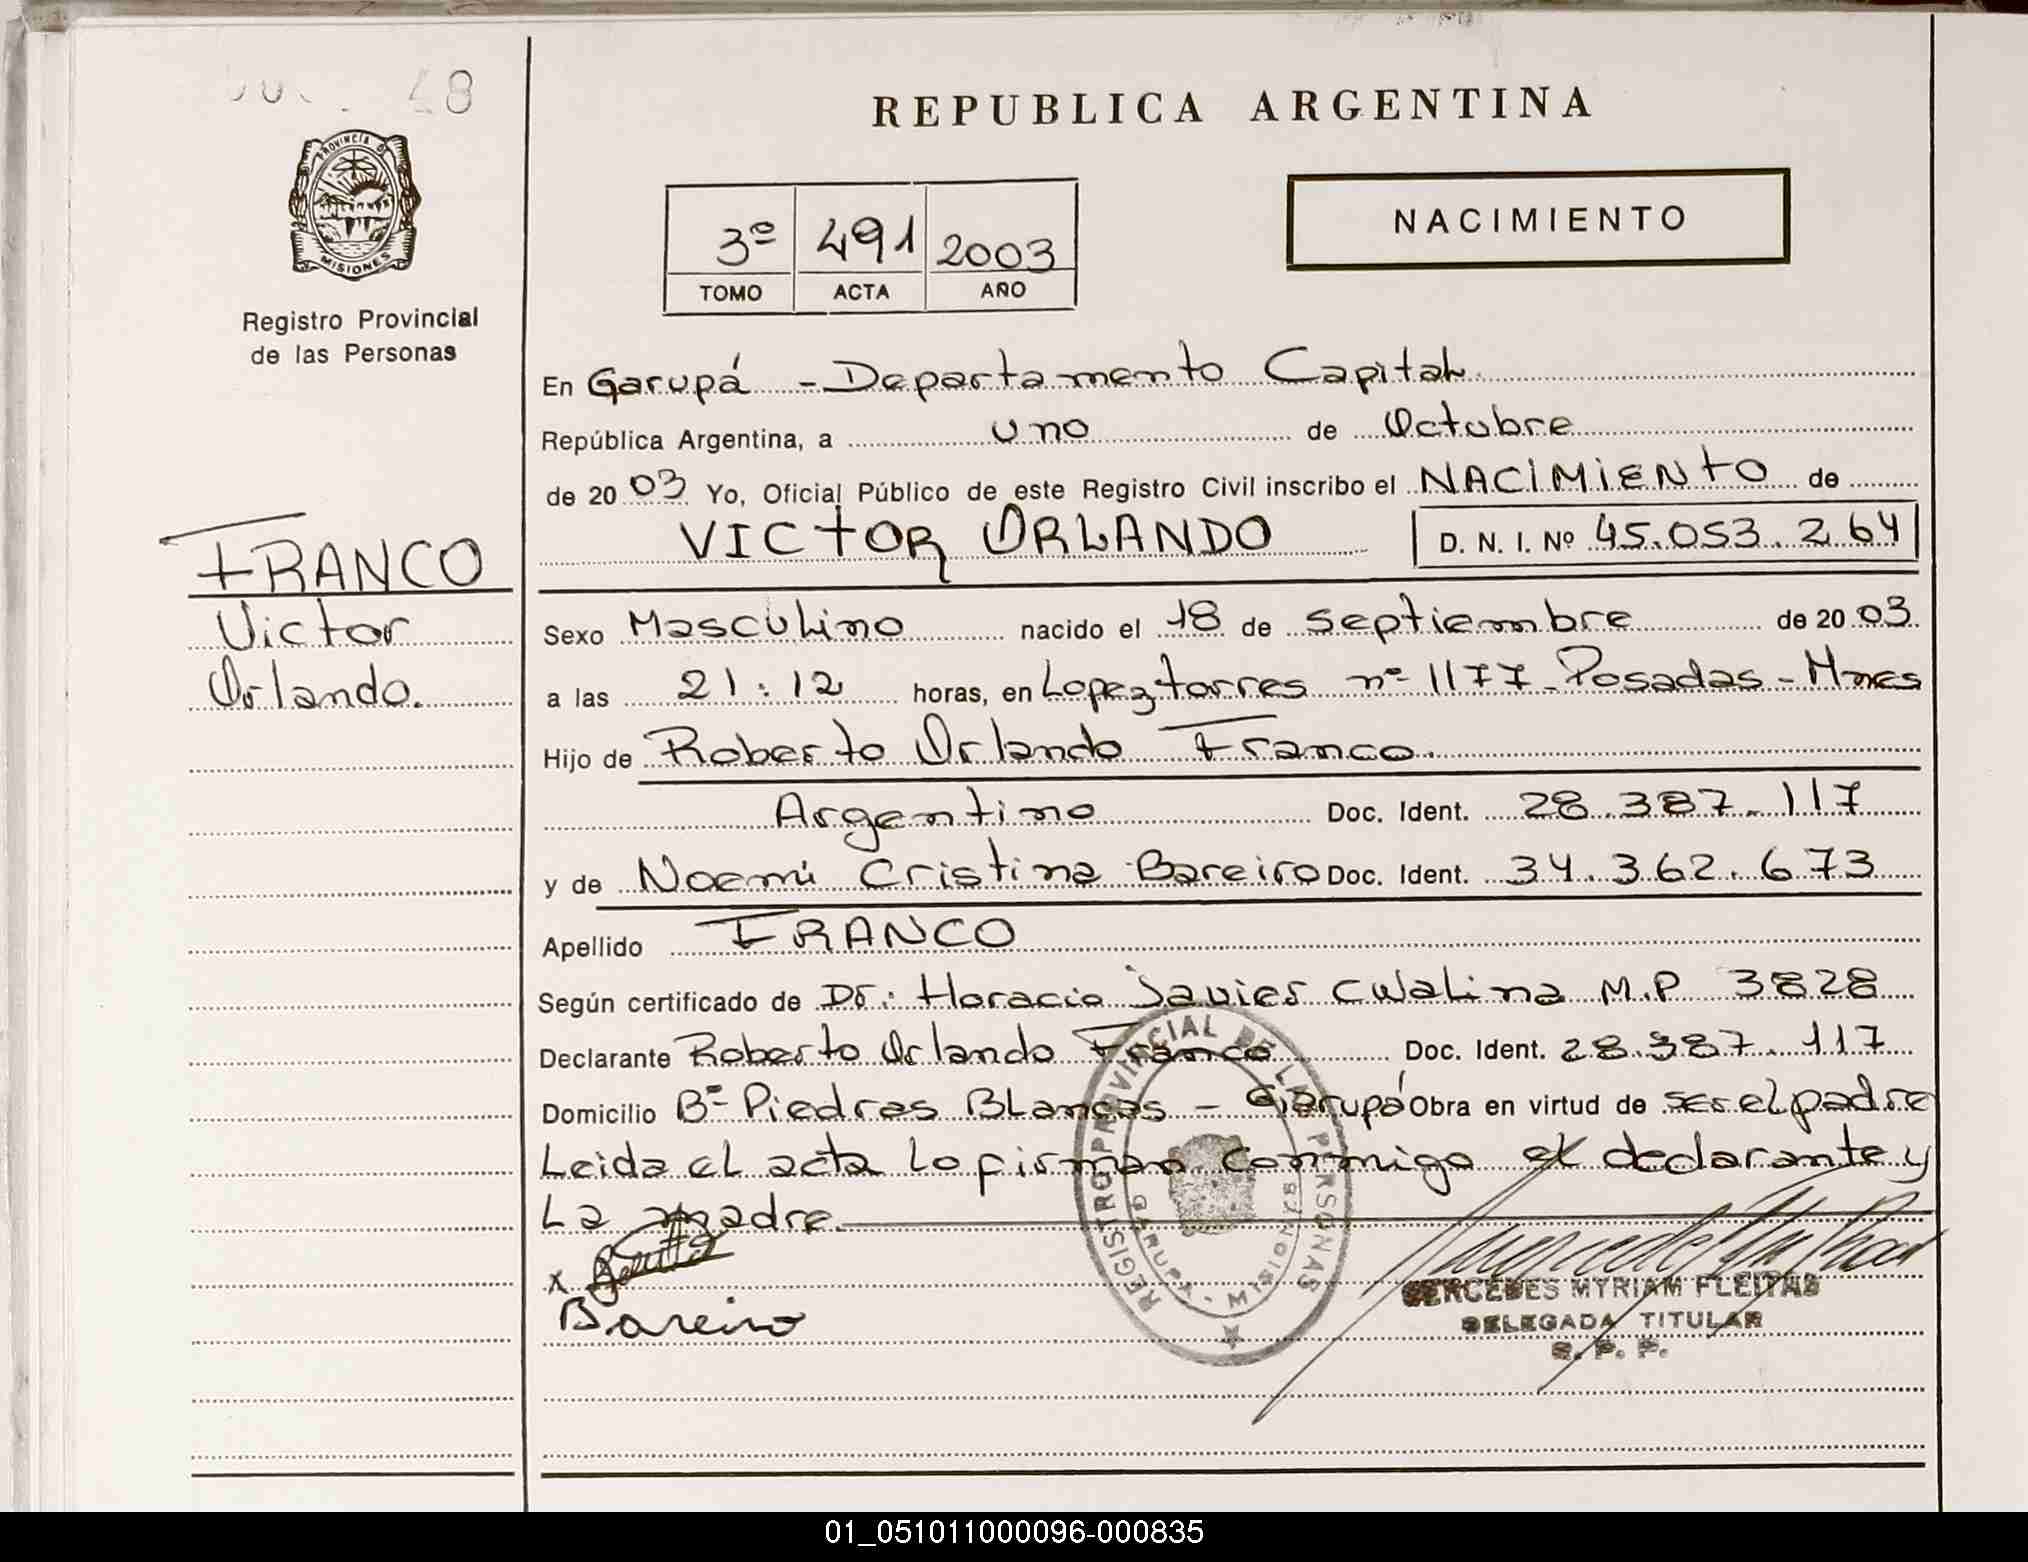 48
PROVINCIA DE
MISIONES
Registro Provincial
de las Personas
FRANCO
Victor
Orlando.
REPUBLICA ARGENTINA
3º 491 2003
TOMO ACTA AÑO
NACIMIENTO
En Garupá - Departamento Capital
República Argentina, a uno de Octubre
de 2003 Yo, Oficial Público de este Registro Civil inscribo el NACIMIENTO de
VICTOR ORLANDO D. N. I. Nº 45.053.264
Sexo Masculino nacido el 18 de septiembre de 2003
a las 21:12 horas, en Lopez torres nº 1177 - Posadas - Mnes
Hijo de Roberto Orlando Franco.
Argentino Doc. Ident. 28.387.117
y de Noemí Cristina Bareiro Doc. Ident. 34.362.673
Apellido FRANCO
Según certificado de Dr: Horacio Javier Cwalina M.P 3828
Declarante Roberto Orlando Franco Doc. Ident. 28.387.117
Domicilio Bº Piedras Blancas - Garupá Obra en virtud de ser el padre
Leida el acta lo firman conmigo el declarante y
La madre.
x
Bareiro
REGISTRO PROVINCIAL DE LAS PERSONAS
GARUPA - MISIONES
MERCEDES MYRIAM FLEITAS
DELEGADA TITULAR
R. P. P.
01_051011000096-000835